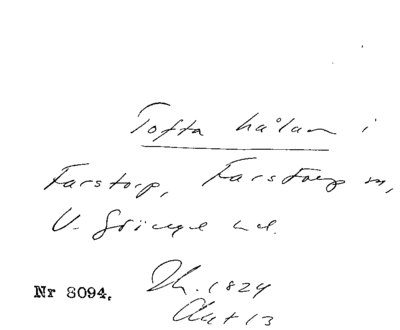 Tofta hålan i
Farstorp, Farstorp sn,
V. Göinge hd.
Nr 8094.
Lh. 1824
Akt 13